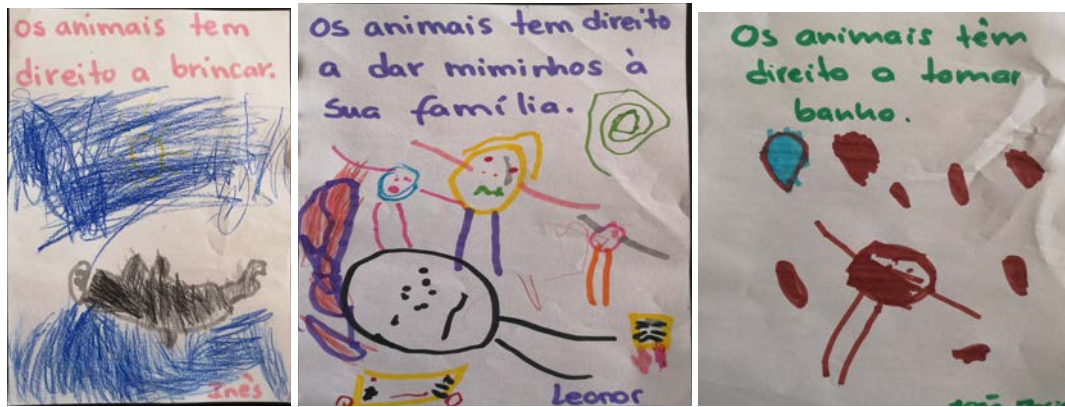 Os animais tem
direito a brincar.
Inês
Os animais tem direito
a dar miminhos à
sua família.
Leonor
Os animais têm
direito a tomar
banho.